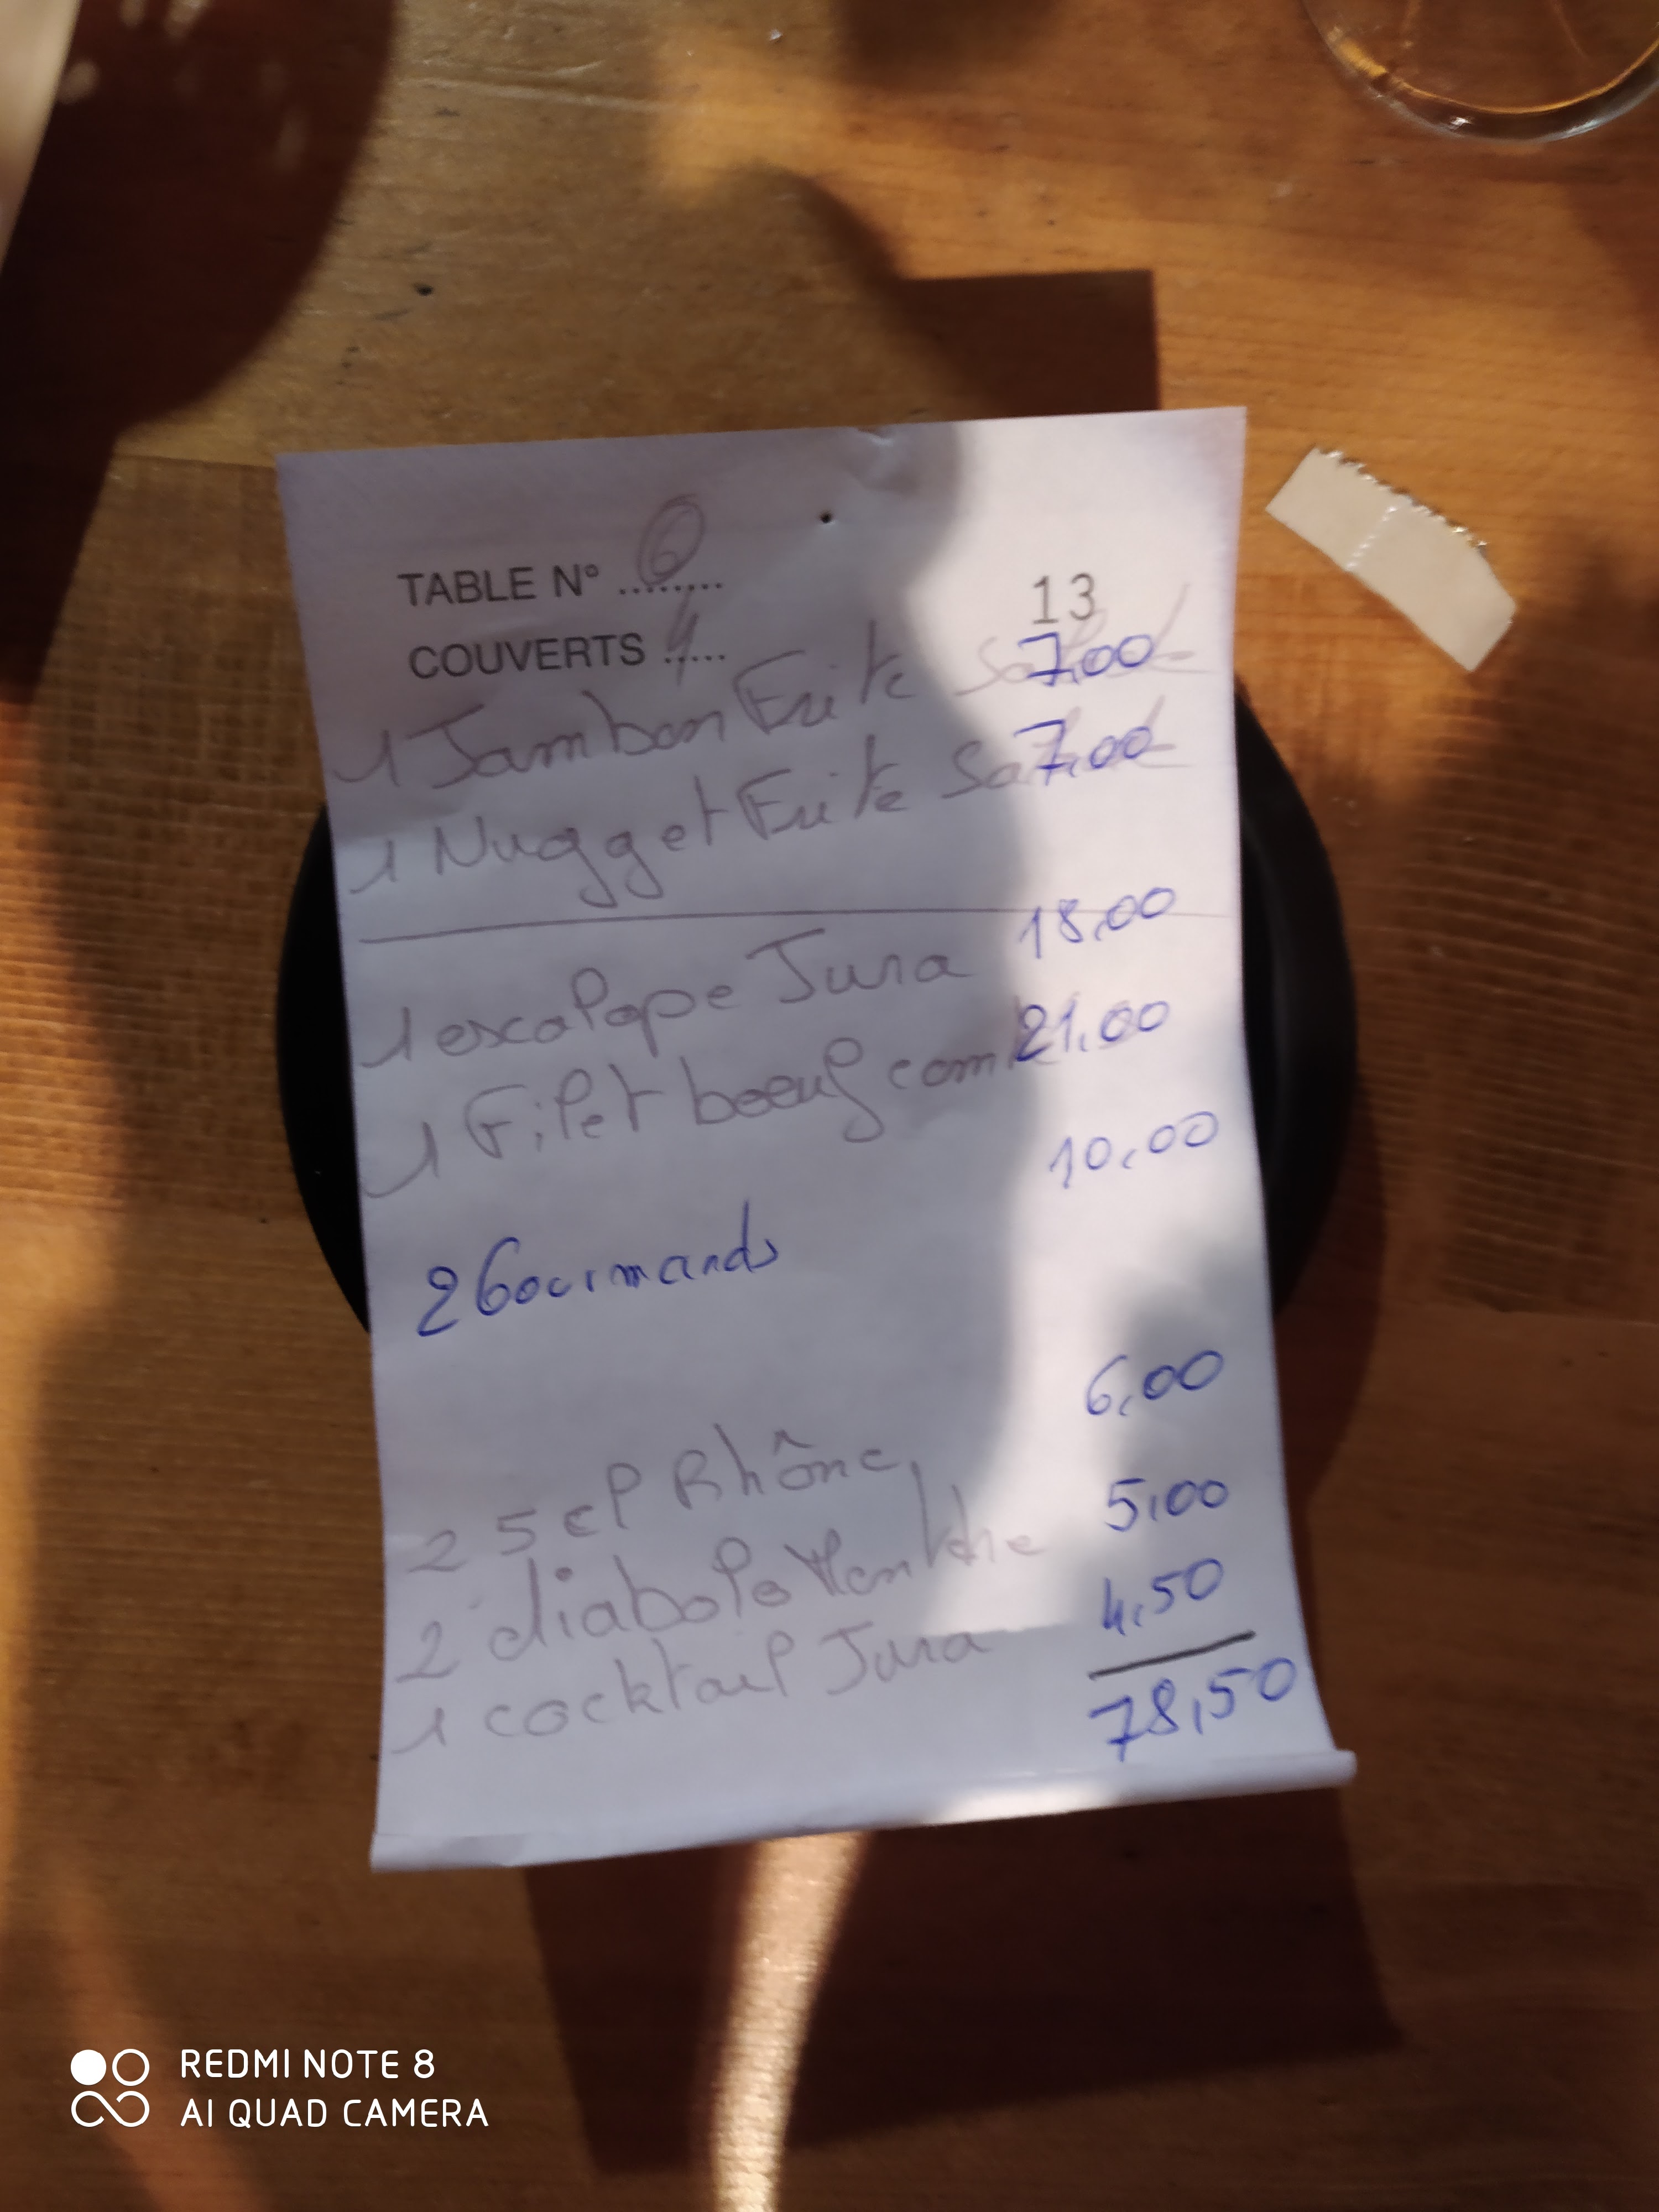 TABLE N° ........ 6
13
COUVERTS ..... 4
1 Jambon Frite Salade 7,00
1 Nugget Frite Salade 7,00
1 escalope Jura 18,00
1 Filet boeuf comté 21,00
2 Gourmands 10,00
25 cl Rhône 6,00
2 diabolo Menthe 5,00
1 cocktail Jura 4,50
78,50
REDMI NOTE 8
AI QUAD CAMERA